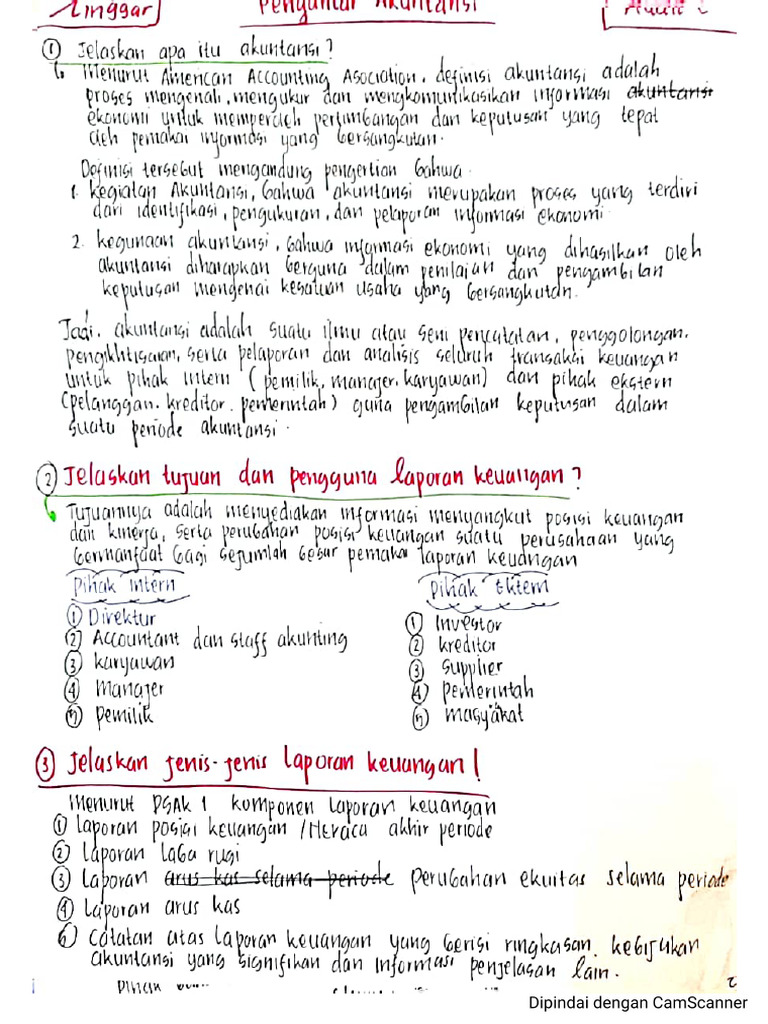 Linggar
Pengantar Akuntansi
① Jelaskan apa itu akuntansi?
Menurut American Accounting Asociation, definisi akuntansi adalah
proses mengenali, mengukur dan mengkomunikasikan informasi akuntansi
ekonomi untuk memperoleh pertimbangan dan keputusan yang tepat
oleh pemakai informasi yang bersangkutan.
Definisi tersebut mengandung pengertian bahwa.
1. kegiatan Akuntansi, bahwa akuntansi merupakan proses yang terdiri
dari identifikasi, pengukuran, dan pelaporan informasi ekonomi.
2. kegunaan akuntansi, bahwa informasi ekonomi yang dihasilkan oleh
akuntansi diharapkan berguna dalam penilaian dan pengambilan
keputusan mengenai kesatuan usaha yang bersangkutan.
Jadi, akuntansi adalah suatu ilmu atau seni pencatatan, penggolongan,
pengikhtisaran, serta pelaporan dan analisis seluruh transaksi keuangan
untuk pihak intern (pemilik, manajer, karyawan) dan pihak ekstern
(pelanggan, kreditor, pemerintah) guna pengambilan keputusan dalam
suatu periode akuntansi.
② Jelaskan tujuan dan pengguna laporan keuangan?
Tujuannya adalah menyediakan informasi menyangkut posisi keuangan
dan kinerja, serta perubahan posisi keuangan suatu perusahaan yang
bermanfaat bagi sejumlah besar pemakai laporan keuangan
Pihak intern
① Direktur
② Accountant dan staff akunting
③ karyawan
④ manajer
⑤ pemilik
Pihak Ekstern
① Investor
② kreditor
③ supplier
④ pemerintah
⑤ masyakat
③ Jelaskan jenis-jenis laporan keuangan!
Menurut PSAK 1 komponen laporan keuangan
① Laporan posisi keuangan /Neraca akhir periode
② Laporan laba rugi
③ Laporan arus kas selama periode perubahan ekuitas selama periode
④ Laporan arus kas
⑤ Catatan atas laporan keuangan yang berisi ringkasan, kebijakan
akuntansi yang signifikan dan informasi penjelasan lain.
Dipindai dengan CamScanner